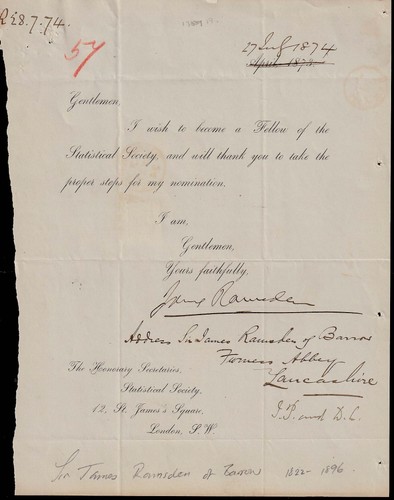 R 28.7.74.
57
27 July 1874
April 1873
Gentlemen,
I wish to become a Fellow of the
Statistical Society, and will thank you to take the
proper steps for my nomination.
I am,
Gentlemen,
Yours faithfully,
James Ramsden
Address Sir James Ramsden of Barrow
Furness Abbey
Lancashire
J.P. and D.L.
The Honorary Secretaries,
Statistical Society,
12, St. James's Square,
London, S.W.
Sir James Ramsden of Barrow 1822-1896.